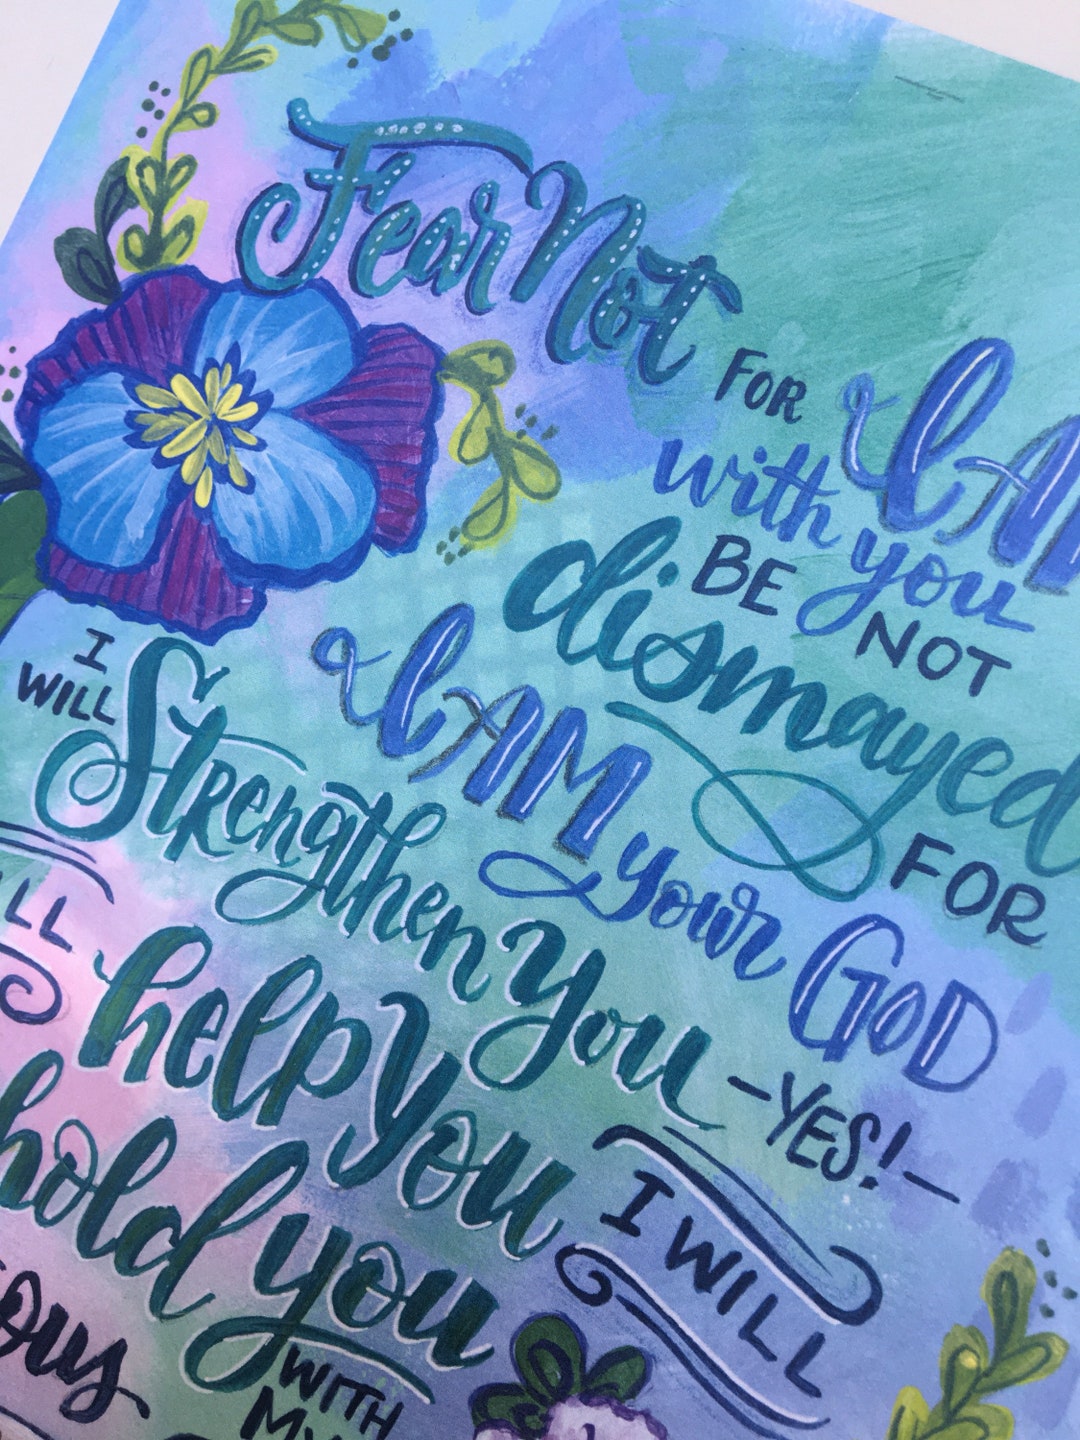 Fear Not
FOR I AM
with you
BE NOT
dismayed
FOR
I AM your GOD
I WILL
Strengthen You
-YES!-
I WILL
help You
hold you
WITH
MY